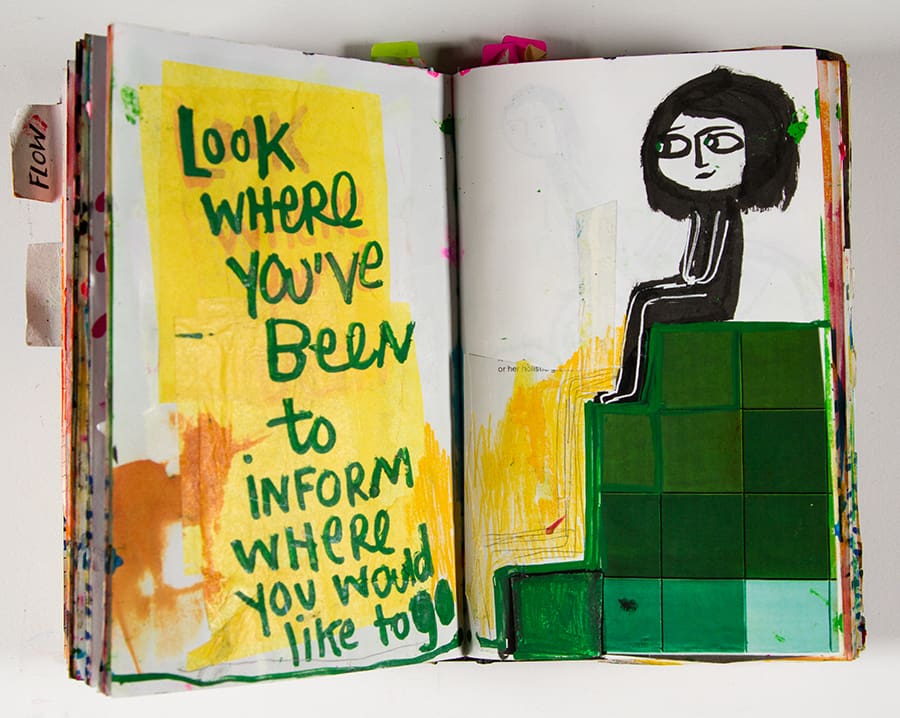 FLOW
LOOK
WHERE
YOU'VE
BEEN
to
INFORM
WHERE
YOU WOULD
like to go
or her holistic